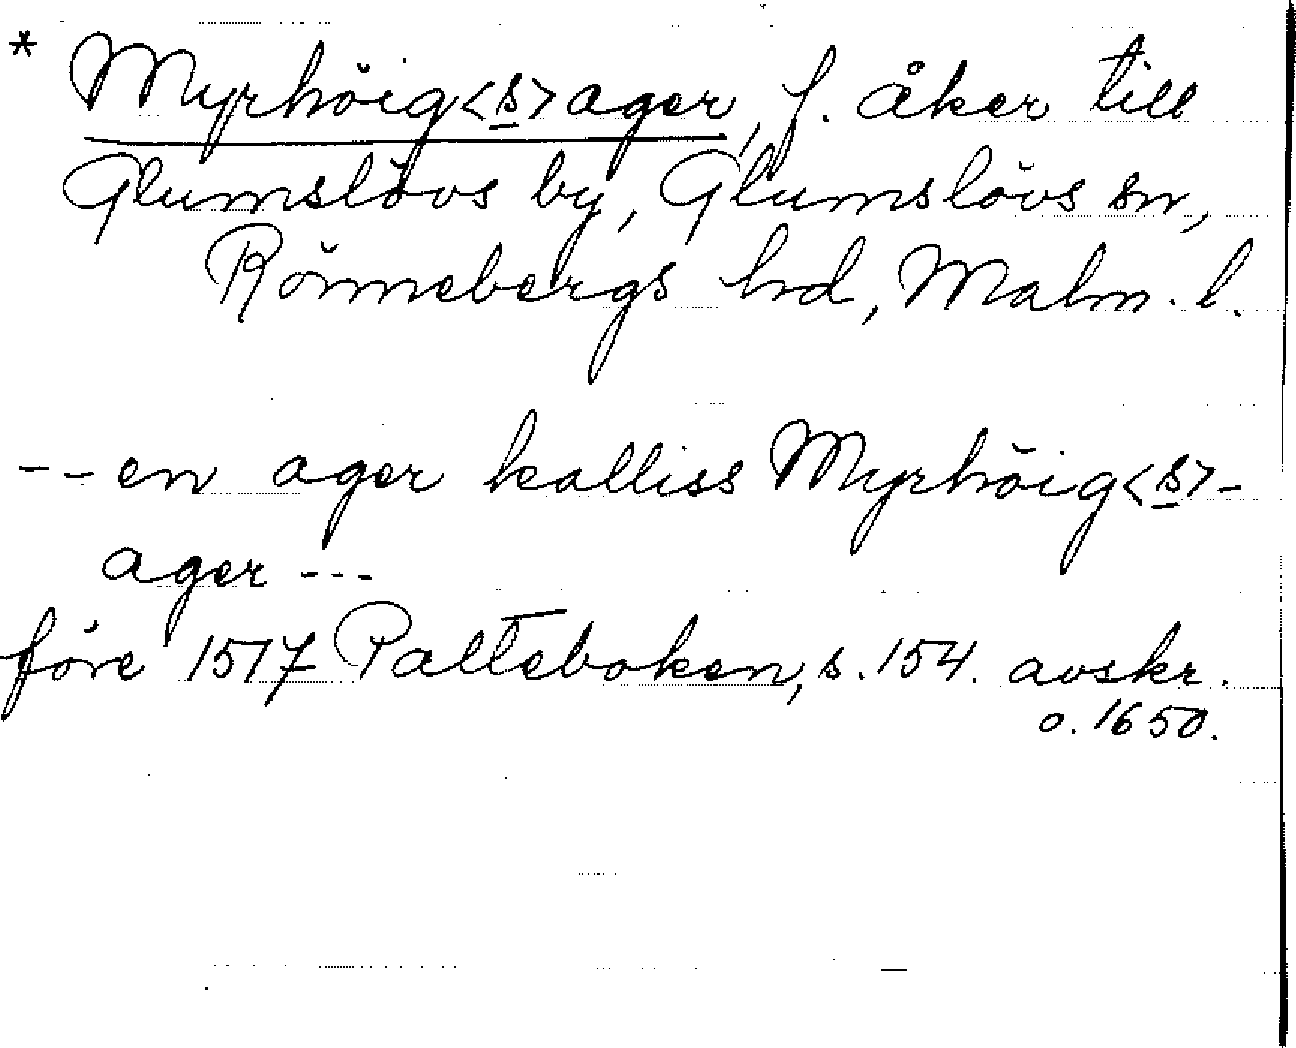 * Myrhöig<s>ager, f. åker till
Glumslövs by, Glumslövs sn,
Rönnebergs hd, Malm. l.
-- en ager kalliss Myrhöig<s>-
ager ---
före 1517 Palteboken, s. 154. avskr.
o. 1650.